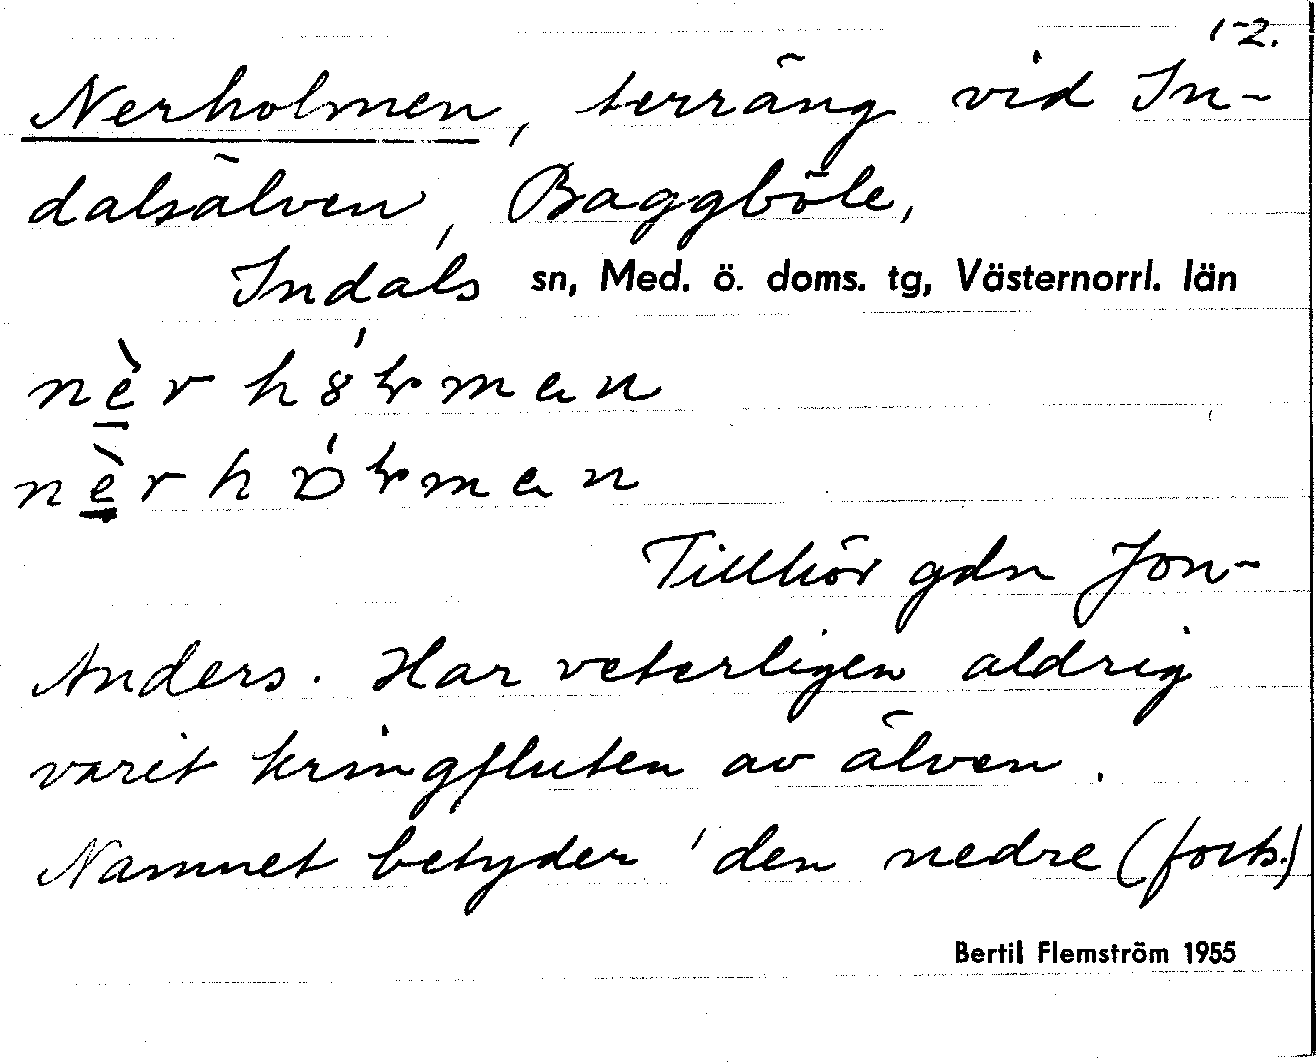 1-2.
Nerholmen, terräng vid In-
dalsälven, Baggböle,
Indals sn, Med. ö. doms. tg, Västernorrl. län
Tillhör gdn Jon-
Anders. Har veterligen aldrig
varit kringfluten av älven.
Namnet betyder 'den nedre (forts.)
Bertil Flemström 1955